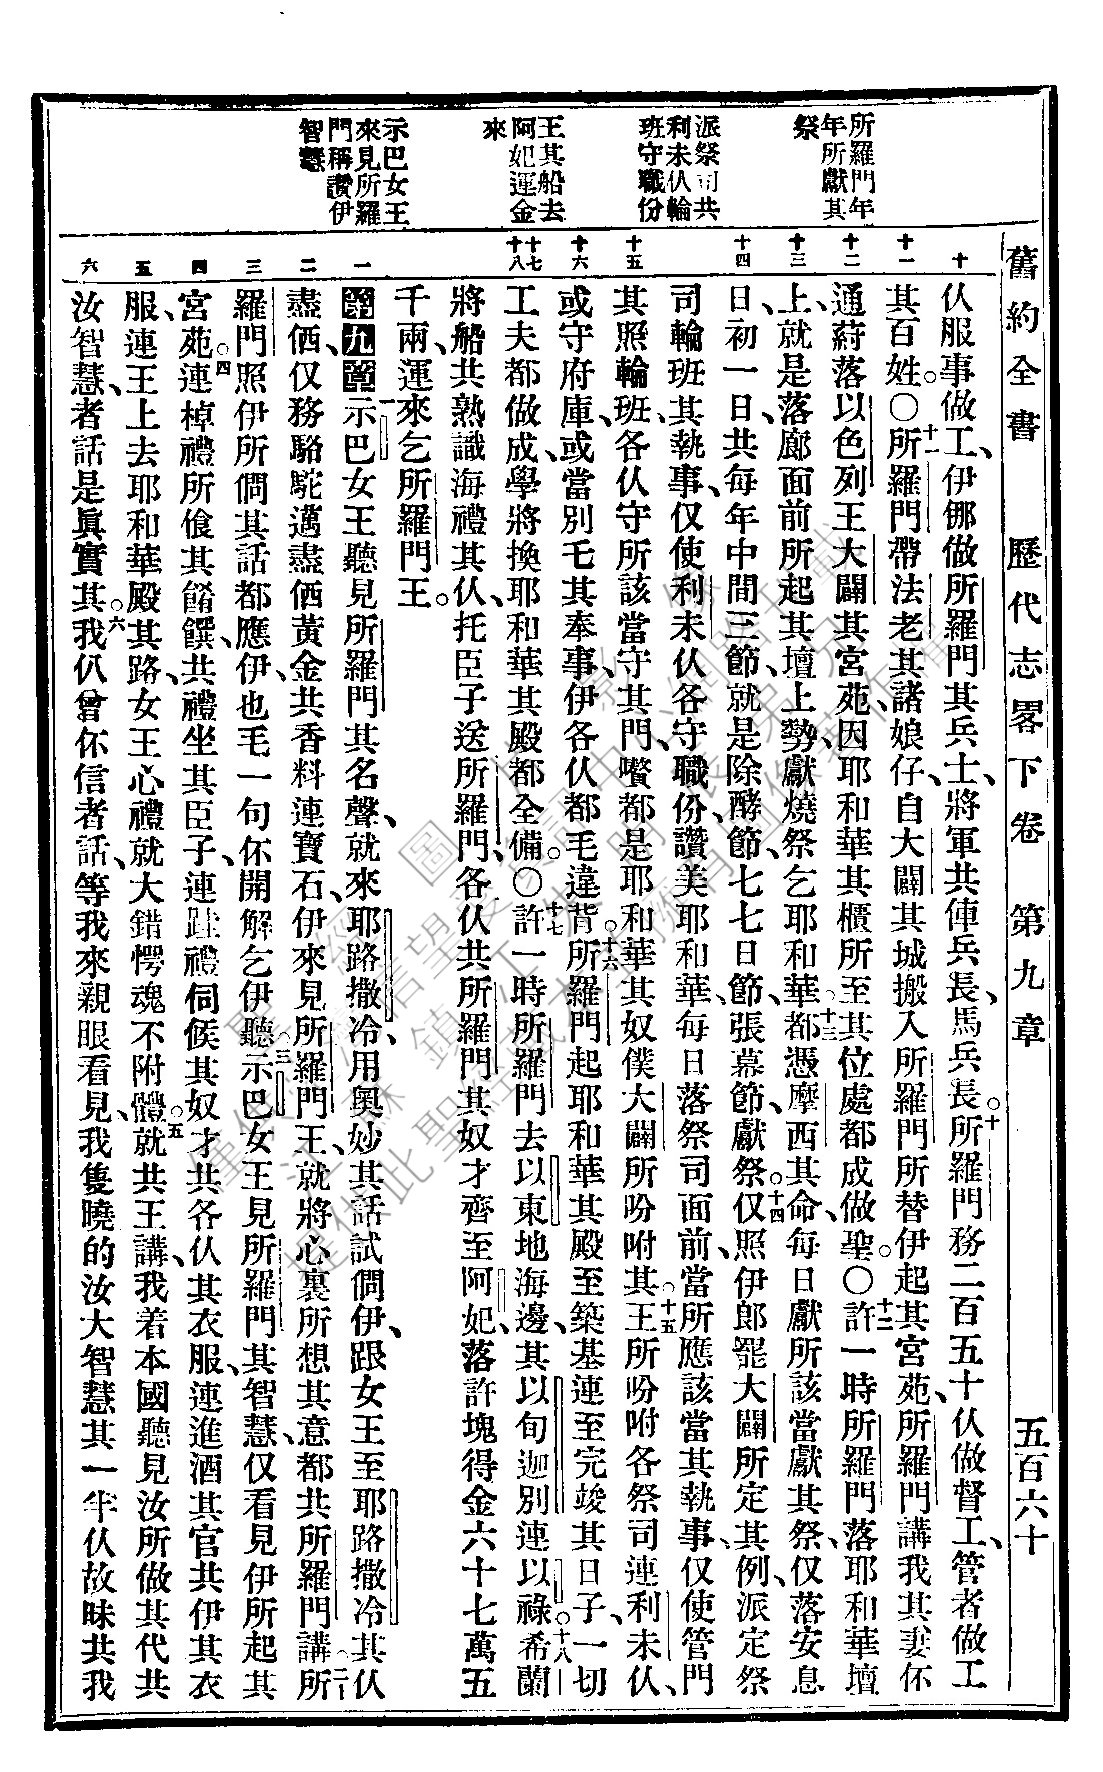 舊約全書　歷代志畧下卷　第九章　五百六十
所羅門年
年所獻其
祭
派祭司共
利未仈輪
班守職份
王其船去
阿妃運金
來
示巴女王
來見所羅
門稱讚伊
智慧
十
十一
十二
十三
十四
十五
十六
十七
十八
一
二
三
四
五
六
仈服事做工、伊挪做所羅門其兵士、將軍共俥兵長、馬兵長。十所羅門務二百五十仈做督工、管者做工
其百姓。〇十一所羅門帶法老其諸娘仔、自大闢其城搬入所羅門所替伊起其宮苑、所羅門講我其妻伓
通蒔落以色列王大闢其宮苑、因耶和華其櫃所至其位處都成做聖。〇十二許一時所羅門落耶和華壇
上、就是落廊面前所起其壇上勢、獻燒祭乞耶和華。十三都憑摩西其命、每日獻所該當獻其祭、仅落安息
日、初一日、共每年中間三節、就是除酵節、七七日節、張幕節、獻祭。十四仅照伊郎罷大闢所定其例、派定祭
司輪班其執事、仅使利未仈各守職份、讚美耶和華、每日落祭司面前、當所應該當其執事、仅使管門
其照輪班、各仈守所該當守其門、嚽都是耶和華其奴僕大闢所吩咐其。十五王所吩咐各祭司連利未仈、
或守府庫、或當別乇其奉事、伊各仈都毛違背。十六所羅門起耶和華其殿、至築基連至完竣其日子、一切
工夫都做成、學將換耶和華其殿都全備。〇十七許一時所羅門去以東地海邊、其以旬迦別連以祿。十八希蘭
將船共熟識海禮其仈、托臣子送所羅門、各仈共所羅門其奴才齊至阿妃、落許塊得金六十七萬五
千兩、運來乞所羅門王。
第九章 一示巴女王聽見所羅門其名聲、就來耶路撒冷、用奧妙其話試僩伊、跟女王至耶路撒冷其仈
盡俪、仅務駱駝邁盡俪黃金共香料連寶石、伊來見所羅門王、就將心裏所想其意都共所羅門講。二所
羅門照伊所僩其話都應伊、也毛一句伓開解乞伊聽。三示巴女王見所羅門其智慧、仅看見伊所起其
宮苑。四連棹禮所飽其餚饌、共禮坐其臣子、連跬禮伺候其奴才、共各仈其衣服、連進酒其官共伊其衣
服、連王上去耶和華殿其路、女王心禮就大錯愕、魂不附體。五就共王講、我着本國聽見汝所做其代共
汝智慧、者話是眞實其。六我仈曾伓信者話、等我來親眼看見、我隻曉的汝大智慧其一半、仈故昧共我